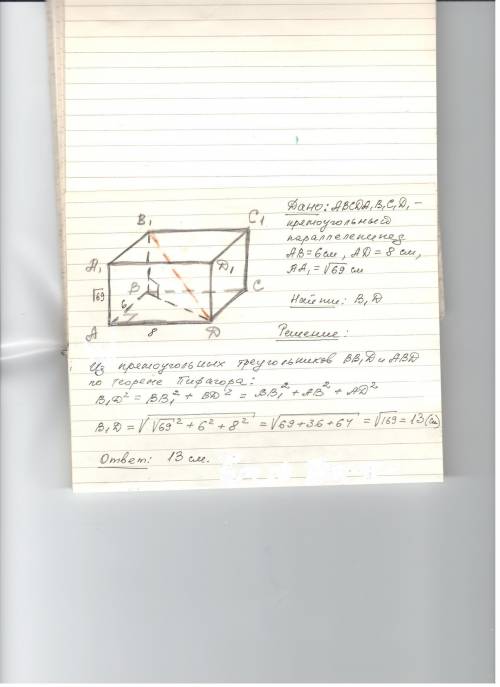 B₁
C₁
A₁
D₁
√69
6
B
C
A
8
D
Дано: ABCDA₁B₁C₁D₁ –
прямоугольный
параллелепипед
AB = 6 см, AD = 8 см,
AA₁ = √69 см
Найти: B₁D
Решение:
Из прямоугольных треугольников BB₁D и ABD
по теореме Пифагора:
B₁D² = BB₁² + BD² = BB₁² + AB² + AD²
B₁D = √(√69² + 6² + 8²) = √(69+36+64) = √169 = 13 (см)
Ответ: 13 см.